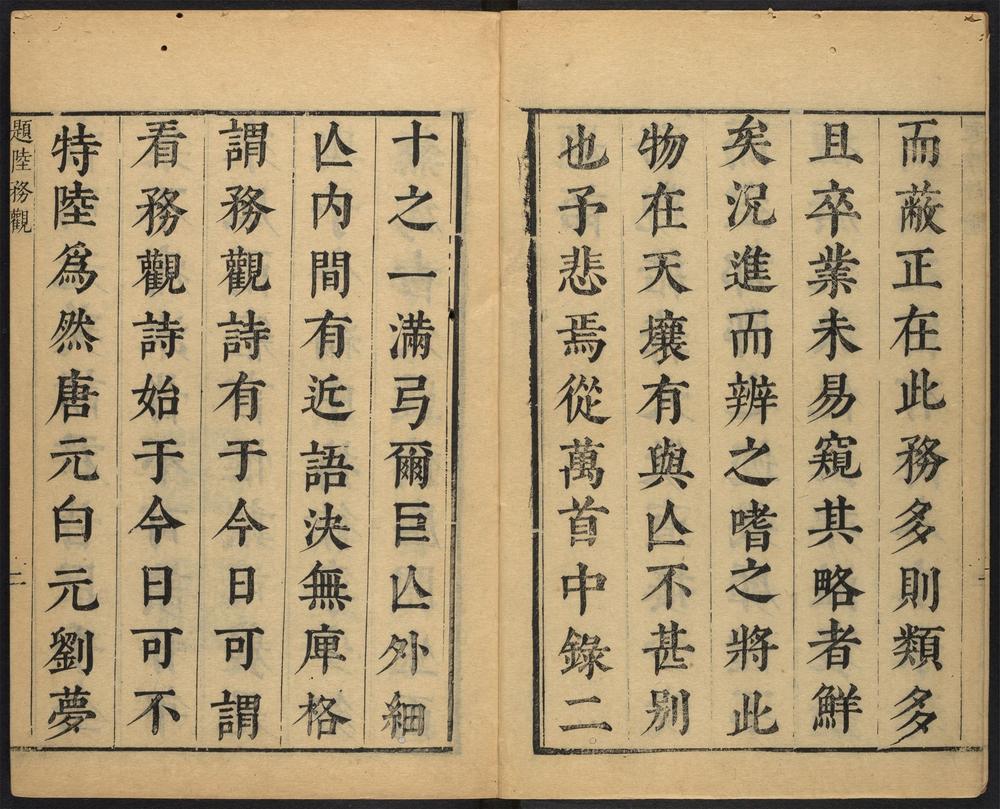 而蔽正在此務多則類多
且卒業未易窺其略者鮮
矣況進而辨之嗜之將此
物在天壤有與亾不甚别
也予悲焉從萬首中錄二
十之一滿弓爾巨亾外細
亾内間有近語決無庳格
謂務觀詩有于今日可謂
看務觀詩始于今日可不
特陸爲然唐元白元劉夢
題陸務觀
二